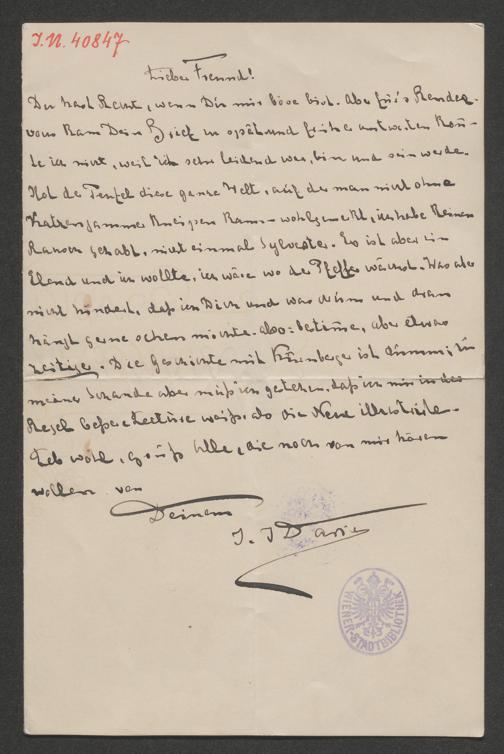 I.N. 40847
Lieber Freund!
Du hast Recht, wenn Du mir böse bist. Aber für's Rendez-
vous kam Dein Brief zu spät und früher antworten konn-
te ich nicht, weil ich sehr leidend war, bin und sein werde.
Hol der Teufel diese ganze Welt, auf der man nicht ohne
Katzenjammer kneipen kann – wohlgemerkt, ich habe keinen
Rausch gehabt, nicht einmal Sylvester. Es ist aber ein
Elend und ich wollte, ich wäre wo der Pfeffer wächst. Was aber
nicht hindert, daß ich Dich und was drum und dran
hängt gerne sehen möchte. Also: bestimme, aber etwas
zeitiger. Die Geschichte mit Kürnberger ist dumm; zu
meiner Schande aber muß ich gestehen, daß ich mir in der
Regel beßere Lectüre weiß, als die Neue illustrirte.
Leb wohl, grüß Alle, die noch von mir hören
wollen von
Deinem
J. J. David
WIENER-STADTBIBLIOTHEK